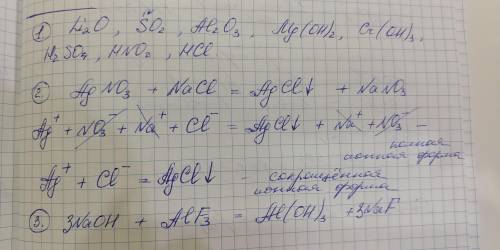 1) Li₂O, SO₂, Al₂O₃, Mg(OH)₂, Cr(OH)₃,
H₂SO₄, HNO₂, HCl
2. AgNO₃ + NaCl = AgCl↓ + NaNO₃
Ag⁺ + NO₃⁻ + Na⁺ + Cl⁻ = AgCl↓ + Na⁺ + NO₃⁻ -
полная
ионная форма
Ag⁺ + Cl⁻ = AgCl↓ - сокращённая
ионная форма
3. 3NaOH + AlF₃ = Al(OH)₃ + 3NaF